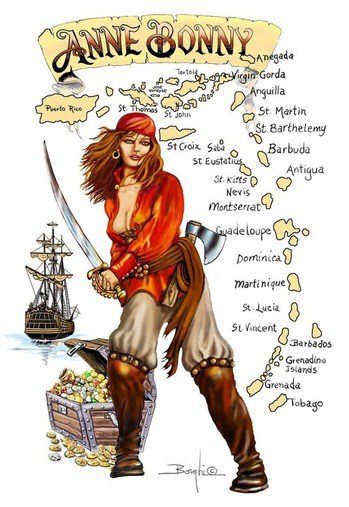 ANNE BONNY
Anegada
Tortola
Virgin Gorda
Anguilla
Puerto Rico
St. Thomas
St. John
St. Martin
St. Barthelemy
St Croix
Saba
Barbuda
St Eustatius
Antigua
St. Kitts
Nevis
Montserrat
Guadeloupe
Dominica
Martinique
St. Lucia
St. Vincent
Barbados
Grenadine
Islands
Grenada
Tobago